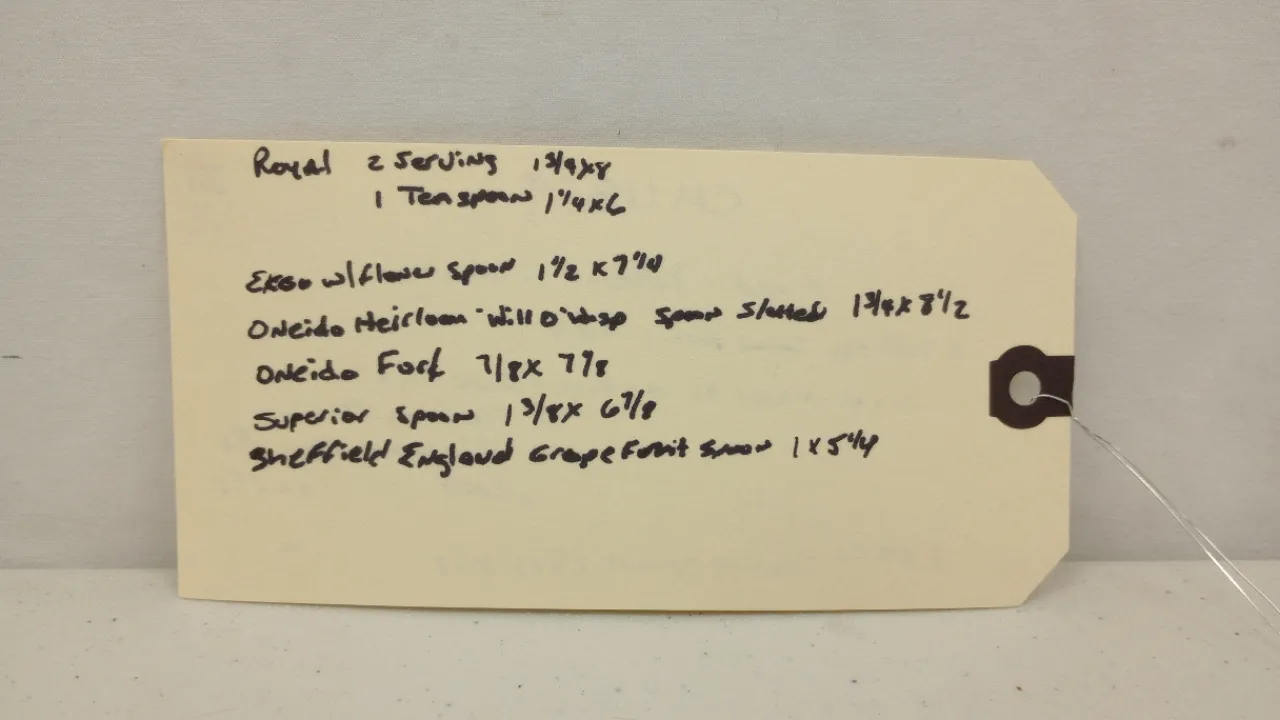 Royal 2 Serving 1 3/4 x 8
1 Teaspoon 1 1/4 x 6
EKCO w/flower Spoon 1 1/2 x 7 1/4
Oneida Heirloom "Will O' Wisp Spoon Slotted 1 3/4 x 8 1/2
Oneida Fork 7/8 x 7 7/8
Superior Spoon 1 3/8 x 6 7/8
Sheffield England Grapefruit Spoon 1 x 5 1/4